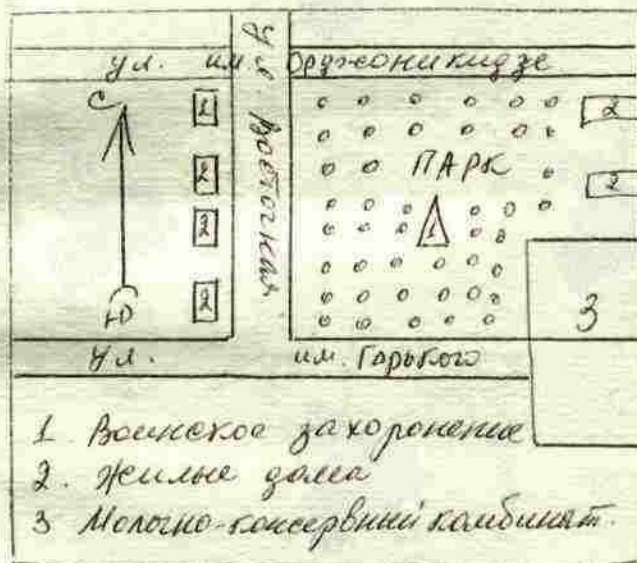 ул. им. Орджоникидзе
Ул. Восточная
С
1
2
2
2
Ю
ПАРК
1
2
2
3
Ул. им. Горького
1 Воинское захоронение
2. Жилые дома
3 Молочно-консервный комбинат.